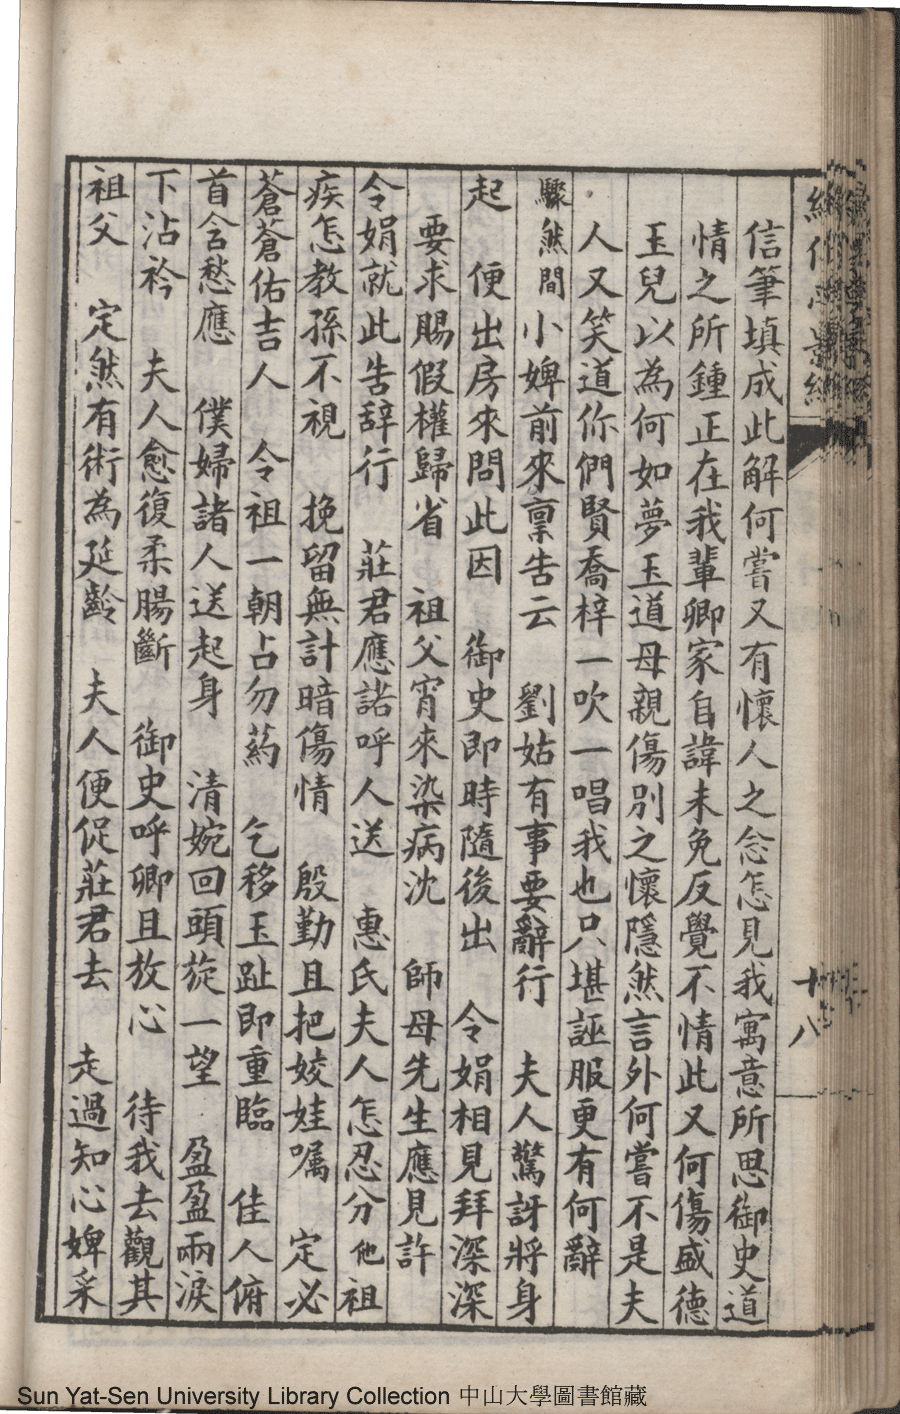 信筆填成此解何嘗又有懷人之念怎見我寓意所思御史道
情之所鍾正在我輩卿家自諱未免反覺不情此又何傷盛德
玉兒以為何如夢玉道母親傷別之懷隱然言外何嘗不是夫
人又笑道你們賢喬梓一吹一唱我也只堪誣服更有何辭
驟然間小婢前來稟告云 劉姑有事要辭行 夫人驚訝將身
起 便出房來問此因 御史即時隨後出 令娟相見拜深深
要求賜假權歸省 祖父宵來染病沈 師母先生應見許
令娟就此告辞行 莊君應諾呼人送 惠氏夫人怎忍分他祖
疾怎教孫不視 挽留無計暗傷情 殷勤且把姣娃嘱 定必
蒼蒼佑吉人 令祖一朝占勿葯 乞移玉趾即重臨 佳人俯
首含愁應 僕婦諸人送起身 清婉回頭旋一望 盈盈兩淚
下沾衿 夫人愈復柔腸斷 御史呼卿且放心 待我去觀其
祖父 定然有術為延齡 夫人便促莊君去 走過知心婢采
十八
Sun Yat-Sen University Library Collection 中山大學圖書館藏